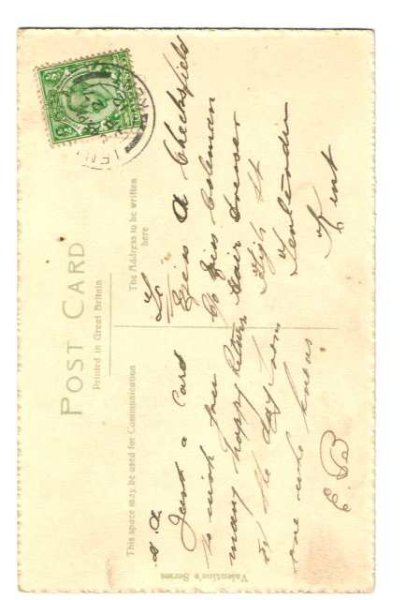 POST CARD
Printed in Great Britain
This space may be used for Communication
The Address to be written
here
Just a Card
to wish you
many happy Return
of the day from
one who knows
E. B
To
Miss A Checksfield
C/o Miss Coleman
Hair Dresser
High St
Tenterden
Kent
Valentine's Series